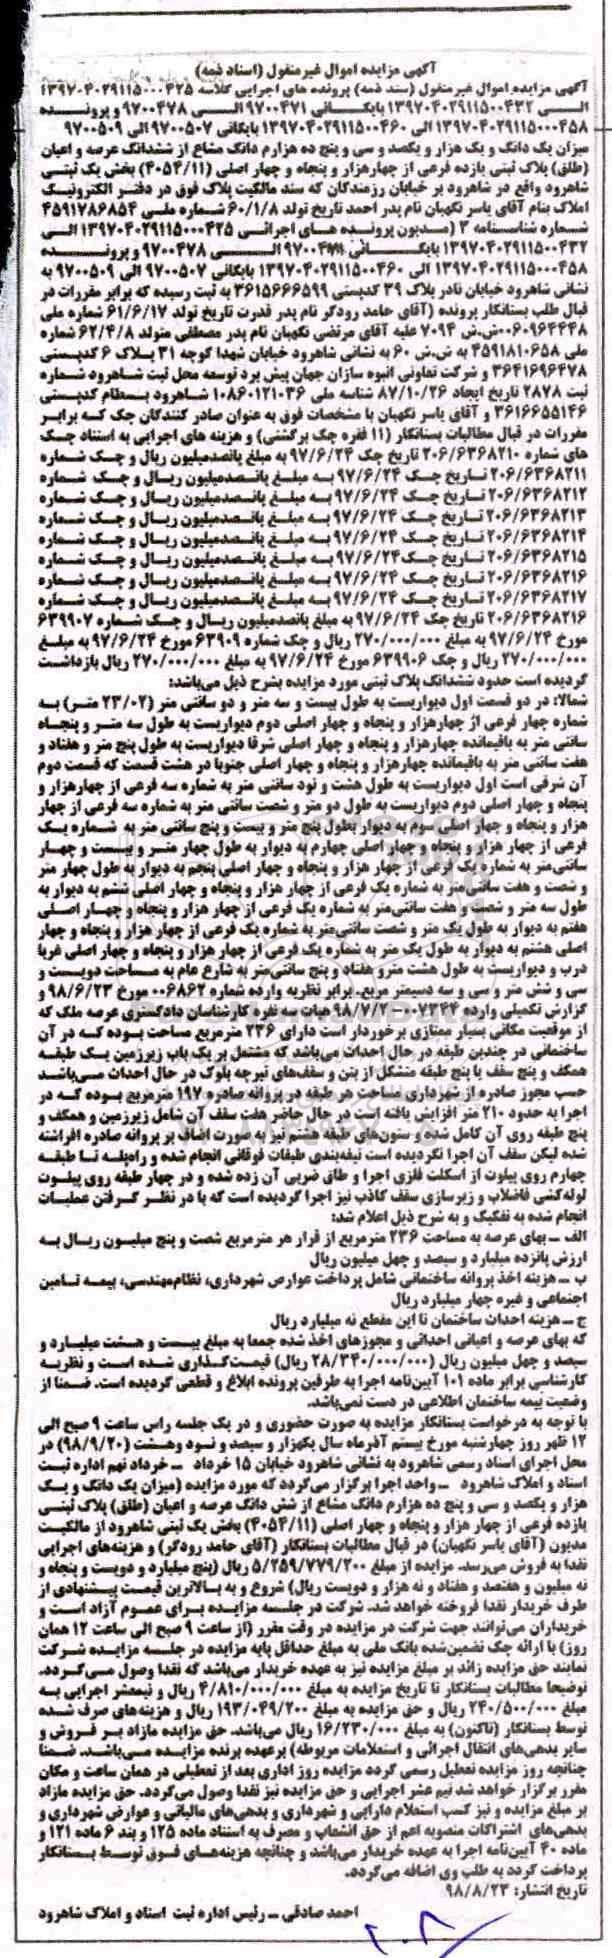 آگهی مزایده اموال غیرمنقول (اسناد ذمه)
آگهی مزایده اموال غیرمنقول (سند ذمه) پرونده های اجرایی کلاسه ۱۳۹۷۰۴۰۲۹۱۱۵۰۰۰۴۲۵
الی ۱۳۹۷۰۴۰۲۹۱۱۵۰۰۰۴۳۲ بایگانی ۹۷۰۰۴۷۱ الی ۹۷۰۰۴۷۸ و پرونده
۱۳۹۷۰۴۰۲۹۱۱۵۰۰۰۴۵۸ الی ۱۳۹۷۰۴۰۲۹۱۱۵۰۰۰۴۶۰ بایگانی ۹۷۰۰۵۰۷ الی ۹۷۰۰۵۰۹
میزان یک دانگ و یک هزار و یکصد و سی و پنج ده هزارم دانگ مشاع از ششدانگ عرصه و اعیان
(طلق) پلاک ثبتی یازده فرعی از چهارهزار و پنجاه و چهار اصلی (۴۰۵۴/۱۱) بخش یک ثبتی
شاهرود واقع در شاهرود بر خیابان رزمندگان که سند مالکیت پلاک فوق در دفتر الکترونیک
املاک بنام آقای یاسر نگهبان نام پدر احمد تاریخ تولد ۶۰/۱/۸ شماره ملی ۴۵۹۱۷۸۶۸۵۴
شماره شناسنامه ۳ (مدیون پرونده های اجرائی ۱۳۹۷۰۴۰۲۹۱۱۵۰۰۰۴۲۵ الی
۱۳۹۷۰۴۰۲۹۱۱۵۰۰۰۴۳۲ بایگانی ۹۷۰۰۴۷۱ الی ۹۷۰۰۴۷۸ و پرونده
۱۳۹۷۰۴۰۲۹۱۱۵۰۰۰۴۵۸ الی ۱۳۹۷۰۴۰۲۹۱۱۵۰۰۰۴۶۰ بایگانی ۹۷۰۰۵۰۷ الی ۹۷۰۰۵۰۹ به
نشانی شاهرود خیابان نادر پلاک ۳۹ کدپستی ۳۶۱۵۶۶۶۵۹۹ به ثبت رسیده که برابر مقررات در
قبال طلب بستانکار پرونده (آقای حامد رودگر نام پدر قدرت تاریخ تولد ۶۱/۶/۱۷ شماره ملی
۰۰۶۰۹۶۴۴۴۸ ش.ش ۷۰۹۴ علیه آقای مرتضی نگهبان نام پدر مصطفی متولد ۶۲/۴/۸ شماره
ملی ۴۵۹۱۸۱۰۶۵۸ به ش.ش ۶۰ به نشانی شاهرود خیابان شهدا کوچه ۳۱ پلاک ۶ کدپستی
۳۶۴۱۶۹۶۴۷۸ و شرکت تعاونی انبوه سازان جهان پیش برد توسعه محل ثبت شاهرود شماره
ثبت ۲۸۷۸ تاریخ ایجاد ۸۷/۱۰/۲۶ شناسه ملی ۱۰۸۶۰۱۲۱۰۳۶ شاهرود بسطام کدپستی
۳۶۱۶۶۵۵۱۴۶ و آقای یاسر نگهبان با مشخصات فوق به عنوان صادر کنندگان چک که برابر
مقررات در قبال مطالبات بستانکار (۱۱ فقره چک برگشتی) و هزینه های اجرایی به استناد چک
های شماره ۲۰۶/۶۳۶۸۲۱۰ تاریخ چک ۹۷/۶/۲۴ به مبلغ پانصدمیلیون ریال و چک شماره
۲۰۶/۶۳۶۸۲۱۱ تاریخ چک ۹۷/۶/۲۴ به مبلغ پانصدمیلیون ریال و چک شماره
۲۰۶/۶۳۶۸۲۱۲ تاریخ چک ۹۷/۶/۲۴ به مبلغ پانصدمیلیون ریال و چک شماره
۲۰۶/۶۳۶۸۲۱۳ تاریخ چک ۹۷/۶/۲۴ به مبلغ پانصدمیلیون ریال و چک شماره
۲۰۶/۶۳۶۸۲۱۴ تاریخ چک ۹۷/۶/۲۴ به مبلغ پانصدمیلیون ریال و چک شماره
۲۰۶/۶۳۶۸۲۱۵ تاریخ چک ۹۷/۶/۲۴ به مبلغ پانصدمیلیون ریال و چک شماره
۲۰۶/۶۳۶۸۲۱۶ تاریخ چک ۹۷/۶/۲۴ به مبلغ پانصدمیلیون ریال و چک شماره
۲۰۶/۶۳۶۸۲۱۷ تاریخ چک ۹۷/۶/۲۴ به مبلغ پانصدمیلیون ریال و چک شماره
۲۰۶/۶۳۶۸۲۱۶ تاریخ چک ۹۷/۶/۲۴ به مبلغ پانصدمیلیون ریال و چک شماره ۶۳۹۹۰۷
مورخ ۹۷/۶/۲۴ به مبلغ ۲۷۰/۰۰۰/۰۰۰ ریال و چک شماره ۶۳۹۰۹ مورخ ۹۷/۶/۲۴ به مبلغ
۲۷۰/۰۰۰/۰۰۰ ریال و چک ۶۳۹۹۰۶ مورخ ۹۷/۶/۲۴ به مبلغ ۲۷۰/۰۰۰/۰۰۰ ریال بازداشت
گردیده است حدود ششدانگ پلاک ثبتی مورد مزایده بشرح ذیل می‌باشد:
شمالا: در دو قسمت اول دیواریست به طول بیست و سه متر و دو سانتی متر (۲۳/۰۲ متر) به
شماره چهار فرعی از چهارهزار و پنجاه و چهار اصلی دوم دیواریست به طول سه متر و پنجاه
سانتی متر به باقیمانده چهارهزار و پنجاه و چهار اصلی شرقا دیواریست به طول پنج متر و هفتاد و
هفت سانتی متر به باقیمانده چهارهزار و پنجاه و چهار اصلی جنوبا در هشت قسمت که قسمت دوم
آن شرقی است اول دیواریست به طول هشت و نود سانتی متر به شماره سه فرعی از چهارهزار و
پنجاه و چهار اصلی دوم دیواریست به طول دو متر و شصت سانتی متر به شماره سه فرعی از چهار
هزار و پنجاه و چهار اصلی سوم به دیوار بطول پنج متر و بیست و پنج سانتی متر به شماره یک
فرعی از چهار هزار و پنجاه و چهار اصلی چهارم به دیوار به طول چهار متر و بیست و چهار
سانتی‌متر به شماره یک فرعی از چهار هزار و پنجاه و چهار اصلی پنجم به دیوار به طول چهار متر
و شصت و هفت سانتی‌متر به شماره یک فرعی از چهار هزار و پنجاه و چهار اصلی ششم به دیوار به
طول سه متر و شصت و هفت سانتی‌متر به شماره یک فرعی از چهار هزار و پنجاه و چهار اصلی
هفتم به دیوار به طول یک متر و شصت سانتی‌متر به شماره یک فرعی از چهار هزار و پنجاه و چهار
اصلی هشتم به دیوار به طول یک متر به شماره یک فرعی از چهار هزار و پنجاه و چهار اصلی غربا
درب و دیواریست به طول هشت مترو هفتاد و پنج سانتی‌متر به شارع عام به مساحت دویست و
سی و شش متر و سی و سه دسیمتر مربع. برابر نظریه وارده شماره ۰۰۶۸۶۲ مورخ ۹۸/۶/۲۳ و
گزارش تکمیلی وارده ۰۰۷۳۴۴ ۹۸/۷/۲ هیات سه نفره کارشناسان دادگستری عرصه ملک که
از موقعیت مکانی بسیار ممتازی برخوردار است دارای ۲۳۶ مترمربع مساحت بوده که در آن
ساختمانی در چندین طبقه در حال احداث می‌باشد که مشتمل بر یک باب زیرزمین یک طبقه
همکف و پنج سقف یا پنج طبقه متشکل از بتن و سقف‌های تیرچه بلوک در حال احداث می‌باشد
حسب مجوز صادره از شهرداری مساحت هر طبقه در پروانه صادره ۱۹۷ مترمربع بوده که در
اجرا به حدود ۲۱۰ متر افزایش یافته است در حال حاضر هفت سقف آن شامل زیرزمین و همکف و
پنج طبقه روی آن کامل شده و ستون‌های طبقه هشتم نیز به صورت اضاف بر پروانه صادره افراشته
شده لیکن سقف آن اجرا نگردیده است تیغه‌بندی طبقات فوقانی انجام شده و راه‌پله تا طبقه
چهارم روی پیلوت از اسکلت فلزی اجرا و طاق ضربی آن زده شده و در چهار طبقه روی پیلوت
لوله‌کشی فاضلاب و زیرسازی سقف کاذب نیز اجرا گردیده است که با در نظر گرفتن عملیات
انجام شده به تفکیک و به شرح ذیل اعلام شد:
الف ــ بهای عرصه به مساحت ۲۳۶ مترمربع از قرار هر مترمربع شصت و پنج میلیون ریال به
ارزش پانزده میلیارد و سیصد و چهل میلیون ریال
ب ــ هزینه اخذ پروانه ساختمانی شامل پرداخت عوارض شهرداری، نظام‌مهندسی، بیمه تامین
اجتماعی و غیره چهار میلیارد ریال
ج ــ هزینه احداث ساختمان تا این مقطع نه میلیارد ریال
که بهای عرصه و اعیانی احداثی و مجوزهای اخذ شده جمعا به مبلغ بیست و هشت میلیارد و
سیصد و چهل میلیون ریال (۲۸/۳۴۰/۰۰۰/۰۰۰ ریال) قیمت‌گذاری شده است و نظریه
کارشناسی برابر ماده ۱۰۱ آیین‌نامه اجرا به طرفین پرونده ابلاغ و قطعی گردیده است. ضمنا از
وضعیت بیمه ساختمان اطلاعی در دست نمی‌باشد.
با توجه به درخواست بستانکار مزایده به صورت حضوری و در یک جلسه راس ساعت ۹ صبح الی
۱۲ ظهر روز چهارشنبه مورخ بیستم آذرماه سال یکهزار و سیصد و نود وهشت (۹۸/۹/۲۰) در
محل اجرای اسناد رسمی شاهرود به نشانی شاهرود خیابان ۱۵ خرداد ــ خرداد نهم اداره ثبت
اسناد و املاک شاهرود ــ واحد اجرا برگزار می‌گردد که مورد مزایده (میزان یک دانگ و یک
هزار و یکصد و سی و پنج ده هزارم دانگ مشاع از شش دانگ عرصه و اعیان (طلق) پلاک ثبتی
یازده فرعی از چهار هزار و پنجاه و چهار اصلی (۴۰۵۴/۱۱) بخش یک ثبتی شاهرود از مالکیت
مدیون (آقای یاسر نگهبان) در قبال مطالبات بستانکار (آقای حامد رودگر) و هزینه‌های اجرایی
نقدا به فروش می‌رسد. مزایده از مبلغ ۵/۲۵۹/۷۷۹/۲۰۰ ریال (پنج میلیارد و دویست و پنجاه و
نه میلیون و هفتصد و هفتاد و نه هزار و دویست ریال) شروع و به بالاترین قیمت پیشنهادی از
طرف خریدار نقدا فروخته خواهد شد. شرکت در جلسه مزایده برای عموم آزاد است و
خریداران می‌توانند جهت شرکت در مزایده در وقت مقرر (از ساعت ۹ صبح الی ساعت ۱۲ همان
روز) با ارائه چک تضمین‌شده بانک ملی به مبلغ حداقل پایه مزایده در جلسه مزایده شرکت
نمایند حق مزایده زائد بر مبلغ مزایده نیز به عهده خریدار می‌باشد که نقدا وصول می‌گردد.
توضیحا مطالبات بستانکار تا تاریخ مزایده به مبلغ ۴/۸۱۰/۰۰۰/۰۰۰ ریال و نیمعشر اجرایی به
مبلغ ۲۴۰/۵۰۰/۰۰۰ ریال و حق مزایده به مبلغ ۱۹۳/۰۴۹/۲۰۰ ریال و هزینه‌های صرف شده
توسط بستانکار (تاکنون) به مبلغ ۱۶/۲۳۰/۰۰۰ ریال می‌باشد. حق مزایده مازاد بر فروش و
سایر بدهی‌های انتقال اجرائی و استعلامات مربوطه) برعهده برنده مزایده می‌باشد. ضمنا
چنانچه روز مزایده تعطیل رسمی گردد مزایده روز اداری بعد از تعطیلی در همان ساعت و مکان
مقرر برگزار خواهد شد نیم عشر اجرایی و حق مزایده نیز نقدا وصول می‌گردد. حق مزایده مازاد
بر مبلغ مزایده و نیز کسب استعلام دارایی و شهرداری و بدهی‌های مالیاتی و عوارض شهرداری و
بدهی‌های اشتراکات منصوبه اعم از حق انشعاب و مصرف به استناد ماده ۱۲۵ و بند ۶ ماده ۱۲۱ و
ماده ۴۰ آیین‌نامه اجرا به عهده خریدار می‌باشد و چنانچه هزینه‌های فوق توسط بستانکار
پرداخت گردد به طلب وی اضافه می‌گردد.
تاریخ انتشار: ۹۸/۸/۲۳
احمد صادقی ــ رئیس اداره ثبت اسناد و املاک شاهرود